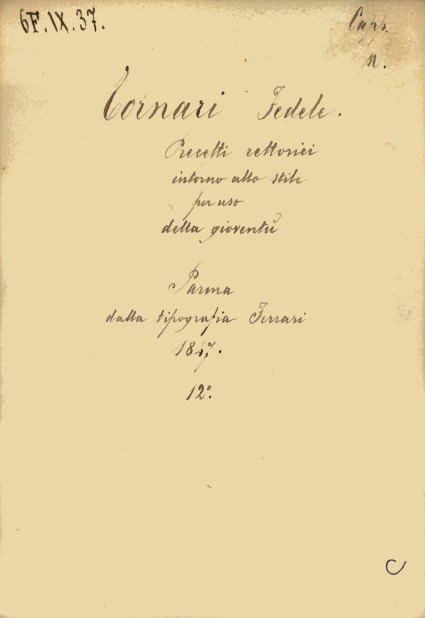 6F.IX.37.
Capp.
11.
Tornari Fedele.
Precetti rettorici
intorno allo stile
per uso
della gioventù
Parma
dalla tipografia Ferrari
1847.
12º.
C